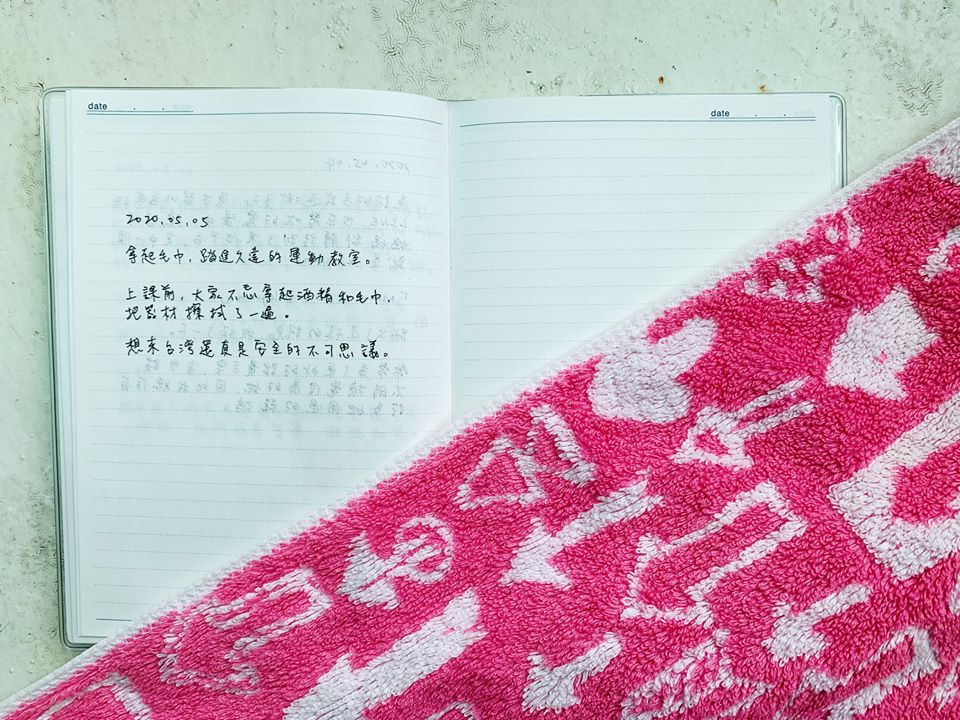 date . .
date . .
2020.05.05
拿起毛巾,踏進久違的運動教室。
上課前,大家不忘拿起酒精和毛巾,
把器材擦拭了一遍。
想來台灣還真是安全的不可思議。